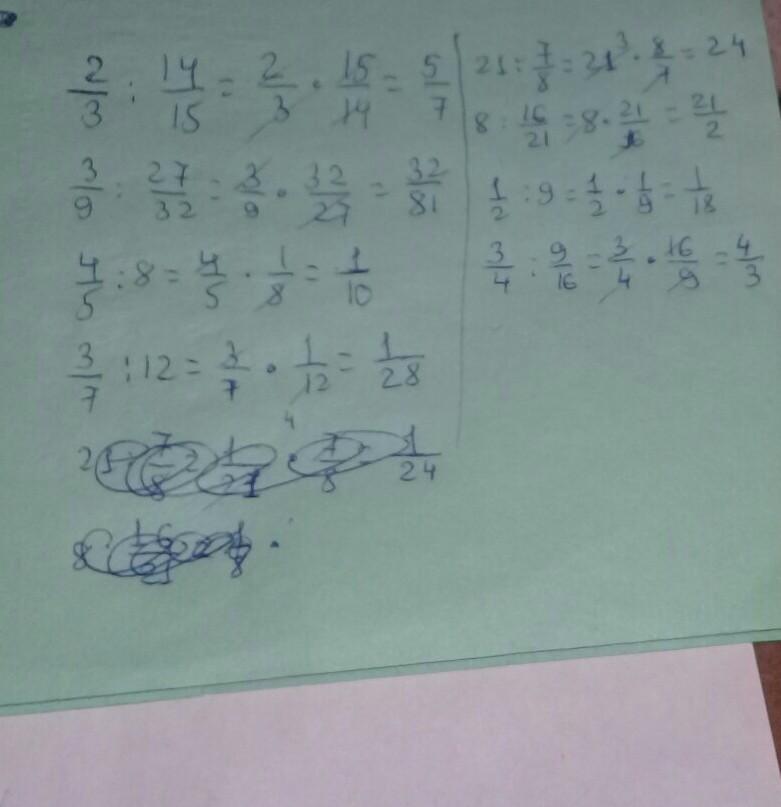 2/3 : 14/15 = 2/3 · 15/14 = 5/7
3/9 : 27/32 = 3/9 · 32/27 = 32/81
4/5 : 8 = 4/5 · 1/8 = 1/10
3/7 : 12 = 3/7 · 1/12 = 1/28
4
1/24
21 : 7/8 = 21 3 · 8/7 = 24
8 : 16/21 = 8 · 21/16 = 21/2
1/2 : 9 = 1/2 · 1/9 = 1/18
3/4 : 9/16 = 3/4 · 16/9 = 4/3